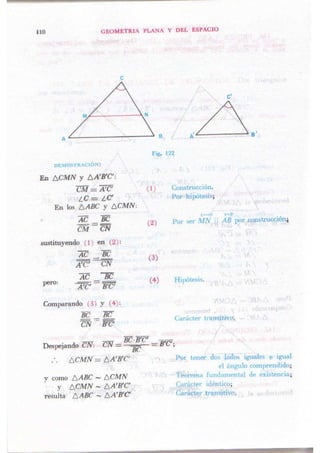 110 GEOMETRIA PLANA Y DEL ESPACIO
C
M N
A B
C'
A' B'
Fig. 132
DEMOSTRACIÓN:
En △CMN y △A'B'C':
CM = A'C' (1) Construcción.
∠C = ∠C' Por hipótesis;
En los △ABC y △CMN:
AC/CM = BC/CN (2) Por ser MN || AB por construcción;
sustituyendo (1) en (2):
AC/A'C' = BC/CN (3)
pero: AC/A'C' = BC/B'C' (4) Hipótesis.
Comparando (3) y (4):
BC/CN = BC/B'C' Carácter transitivo.
Despejando CN: CN = BC·B'C'/BC = B'C';
∴ △CMN = △A'B'C' Por tener dos lados iguales e igual
el ángulo comprendido;
y como △ABC ~ △CMN Teorema fundamental de existencia;
y △CMN ~ △A'B'C' Carácter idéntico;
resulta △ABC ~ △A'B'C' Carácter transitivo.